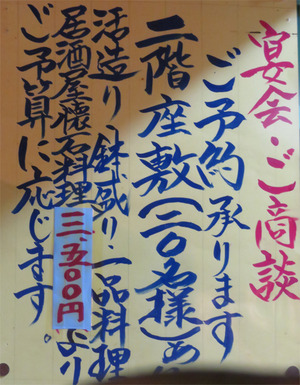 宴会・ご商談
ご予約承ります
二階座敷(二〇名様)あ
活造り・鉢盛り・一品料理
居酒屋懐石料理三、五〇〇円より
ご予算に応じます。